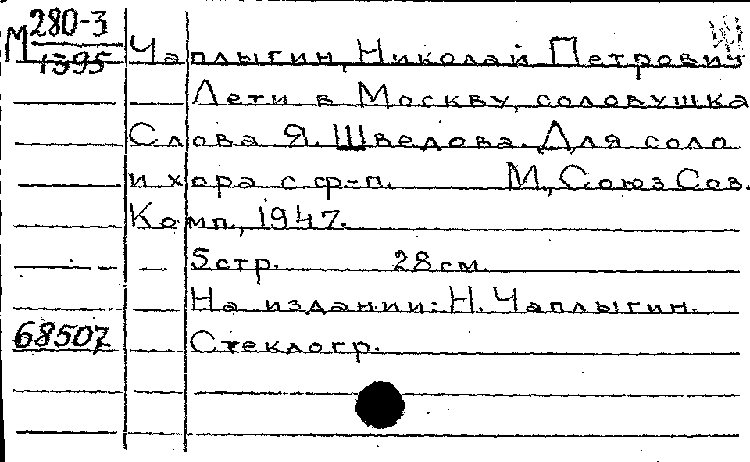 М 280-3
1395
Чаплыгин, Николай Петрович
Лети в Москву, соловушка
Слова Я. Шведова. Для соло
и хора с ф-п. М., Союз Сов.
Комп., 1947.
5 стр. 28 см.
На издании: Н. Чаплыгин.
68507 Стеклогр.